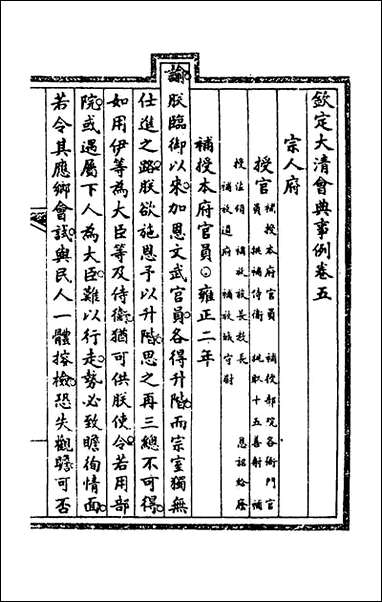 欽定大清會典事例卷五
宗人府
授官補授本府官員 補授部院各衙門官
員 挑補侍衛 挑取十五善射 補
授佐領 補放族長教長 恩詔給廕
補放道府 補放城守尉
補授本府官員○雍正二年
諭朕臨御以來加恩文武官員各得升階而宗室獨無
仕進之路朕欲施恩予以升階思之再三總不可得
如用伊等為大臣等及侍衛猶可供朕使令若用部
院或遇屬下人為大臣難以行走勢必致瞻徇情面
若令其應鄉會試與民人一體搜檢恐失觀瞻可否